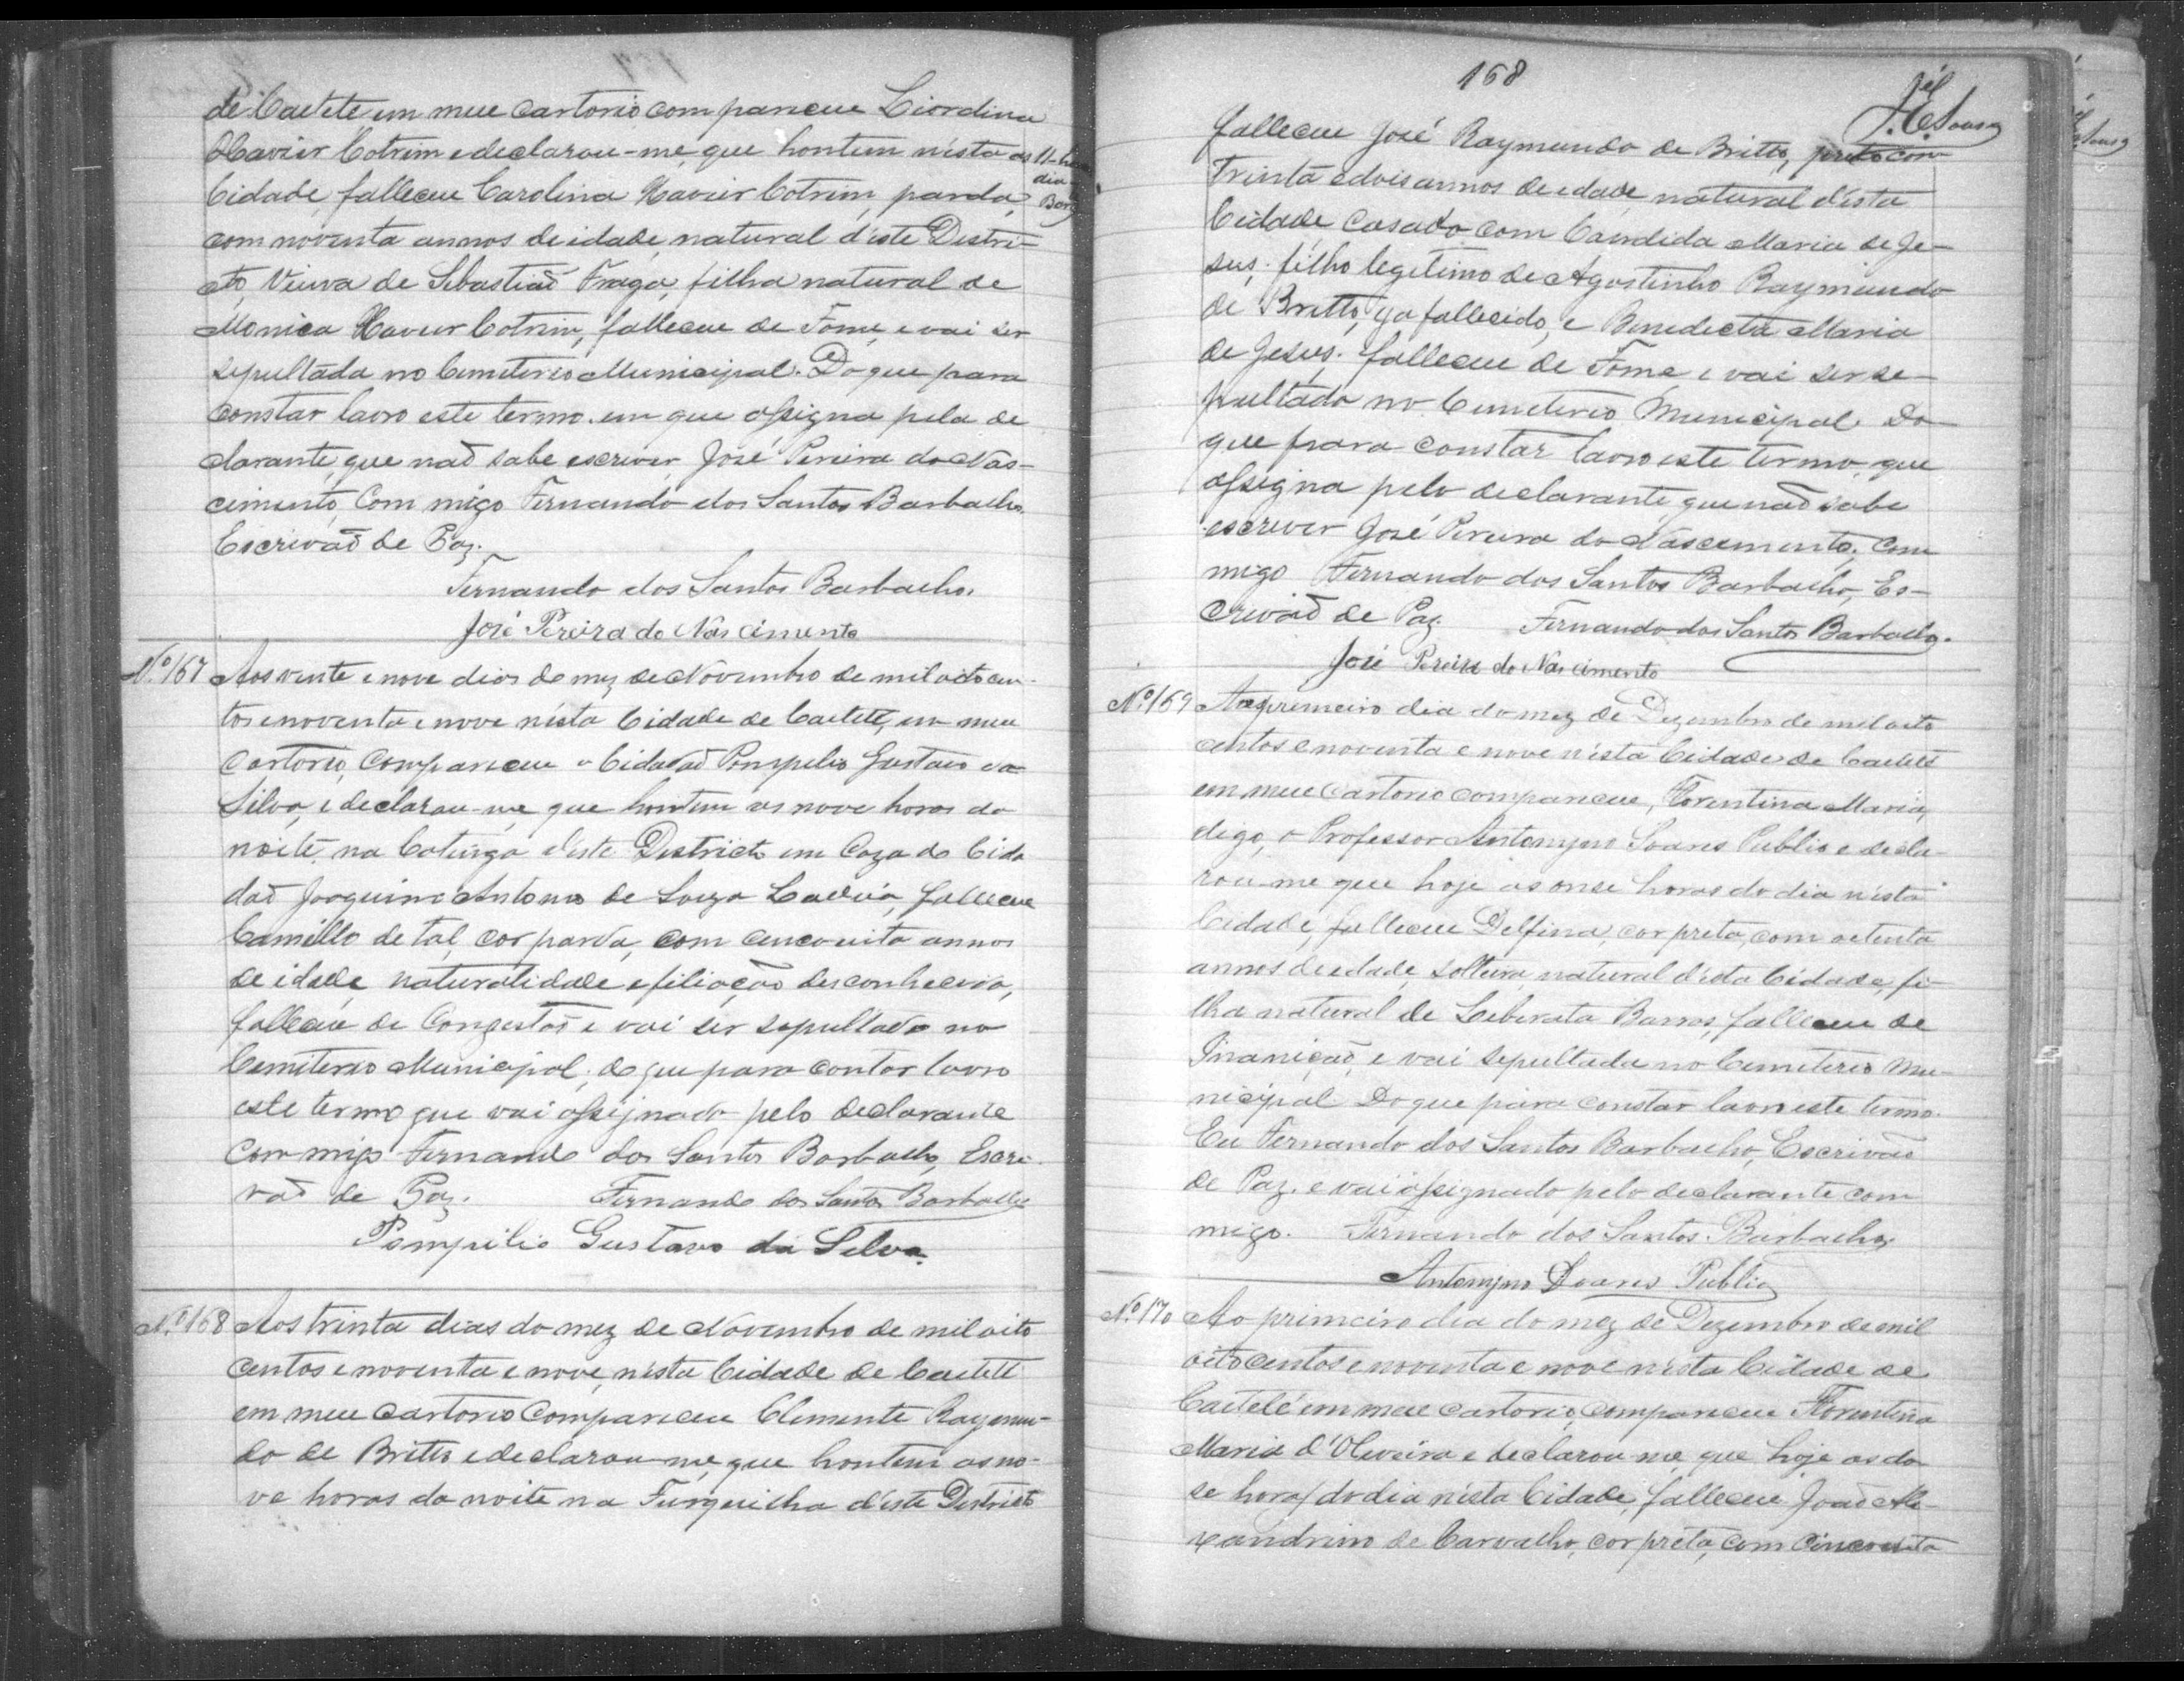 de Caetete em meu cartorio compareceu Liordina
Xavier Cotrim e declarou-me, que hontem nésta as 11 horas
dia
Cidade, falleceu Carolina Xavier Cotrim, parda,
com noventa annos de idade, natural d'este Distri-
cto, Viuva de Sebastiaõ Fraga, filha natural de
Monica Xavier Cotrim, falleceu de Fome, e vai ser
sepultada no Cemeterio Municipal. Do que para
constar lavro este termo em que assigna pela de
clarante, que naõ sabe escrever José Pereira do Nas-
cimento, Com migo Fernando dos Santos Barbalho,
Escrivaõ de Paz.
Fernando dos Santos Barbalho.
José Pereira do Nascimento
Nº 167 Aos vinte e nove dias do mez de Novembro de mil oitocen-
tos e noventa e nove nésta Cidade de Caeteté, em meu
Cartorio, Compareceu o Cidadaõ Pompilio Gustavo da
Silva, e declarou-me que hontem as nove horas da
noite, na Catinga d'este Districto em Caza do Cida
daõ Joaquim Antonio de Souza Ladeia, falleceu
Camillo de tal, cor parda, com cincoenta annos
de idade, naturalidade e filiação desconhecida,
falleceu de Congestaõ e vai ser sepultado no
Cemiterio Municipal; do que para contar lavro
este termo que vai assignado pelo declarante
com migo Fernando dos Santos Barbalho, Escri-
vaõ de Paz. Fernando dos Santos Barbalho
Pompilio Gustavo da Silva.
Nº 168 Aos trinta dias do mez de Novembro de mil oito
centos e noventa e nove, nésta Cidade de Caeteté
em meu cartorio Compareceu Clemente Raymun-
do de Britto e declarou-me, que hontem as no-
ve horas da noite na Furquilha d'este Districto
168
falleceu José Raymundo de Britto, preto com
Trinta e dois annos de edade, natural d'ésta
Cidade, Casado com Candida Maria de Je-
sus; filho legitimo de Agostinho Raymundo
de Britto, ja fallecido, e Benedicta Maria
de Jesus; falleceu de Fome e vai ser se-
pultado no Cemeterio Municipal. Do
que para constar lavro este termo, que
assigna pelo declarante, que naõ sabe
escrever José Pereira do Nascimento, Com
migo Fernando dos Santos Barbalho, Es-
crivaõ de Paz. Fernando dos Santos Barbalho.
José Pereira do Nascimento
Nº 169 Ao primeiro dia do mez de Dezembro de mil oito
centos e noventa e nove n'ésta Cidade de Caeteté
em meu Cartorio compareceu, Florentina Maria,
digo, o Professor Antonyno Soares Publio e decla-
rou-me que hoje as onse horas do dia n'ésta
Cidade, falleceu Delfina, cor preta, com oetenta
annos de edade, solteira, natural d'ésta Cidade, fi-
lha natural de Leberata Barros, falleceu de
Inaniçaõ, e vai sepultada no Cemeterio Mu-
nicipal. Do que para constar lavro este termo.
Eu Fernando dos Santos Barbalho, Escrivaõ
de Paz. e vai assignado pelo declarante com
migo. Fernando dos Santos Barbalho,
Antonyno Soares Publio
Nº 170 Ao primeiro dia do mez de Dezembro de mil
oitocentos e noventa e nove nésta Cidade de
Caeteté em meu cartorio, compareceu Florentina
Maria d'Oliveira e declarou-me que hoje as do
se horas do dia n'ésta Cidade, falleceu Joaõ Ale-
xandrino de Carvalho, cor preta, com Cincoenta